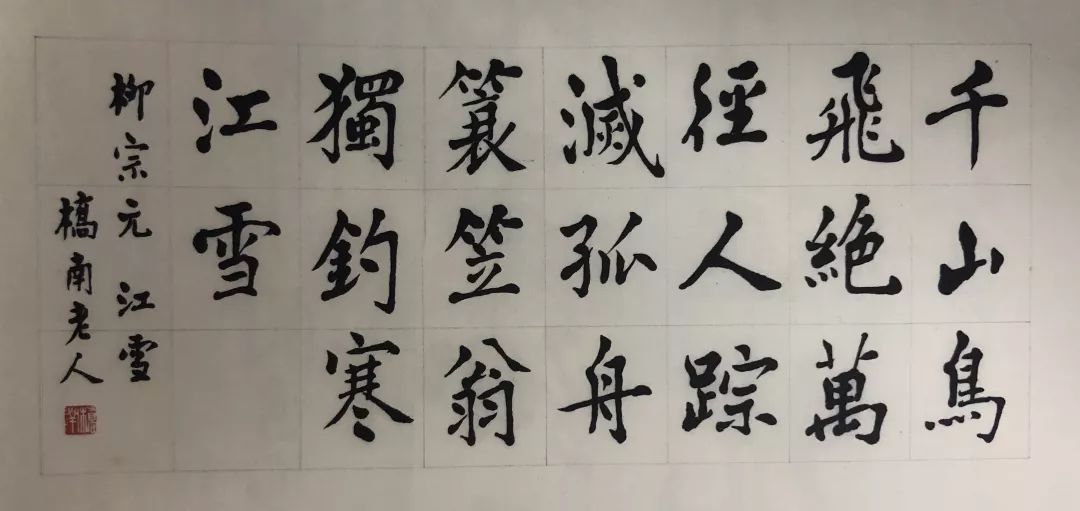 千山鳥
飛絕萬
徑人踪
滅孤舟
簑笠翁
獨釣寒
江雪
柳宗元 江雪
橋南老人